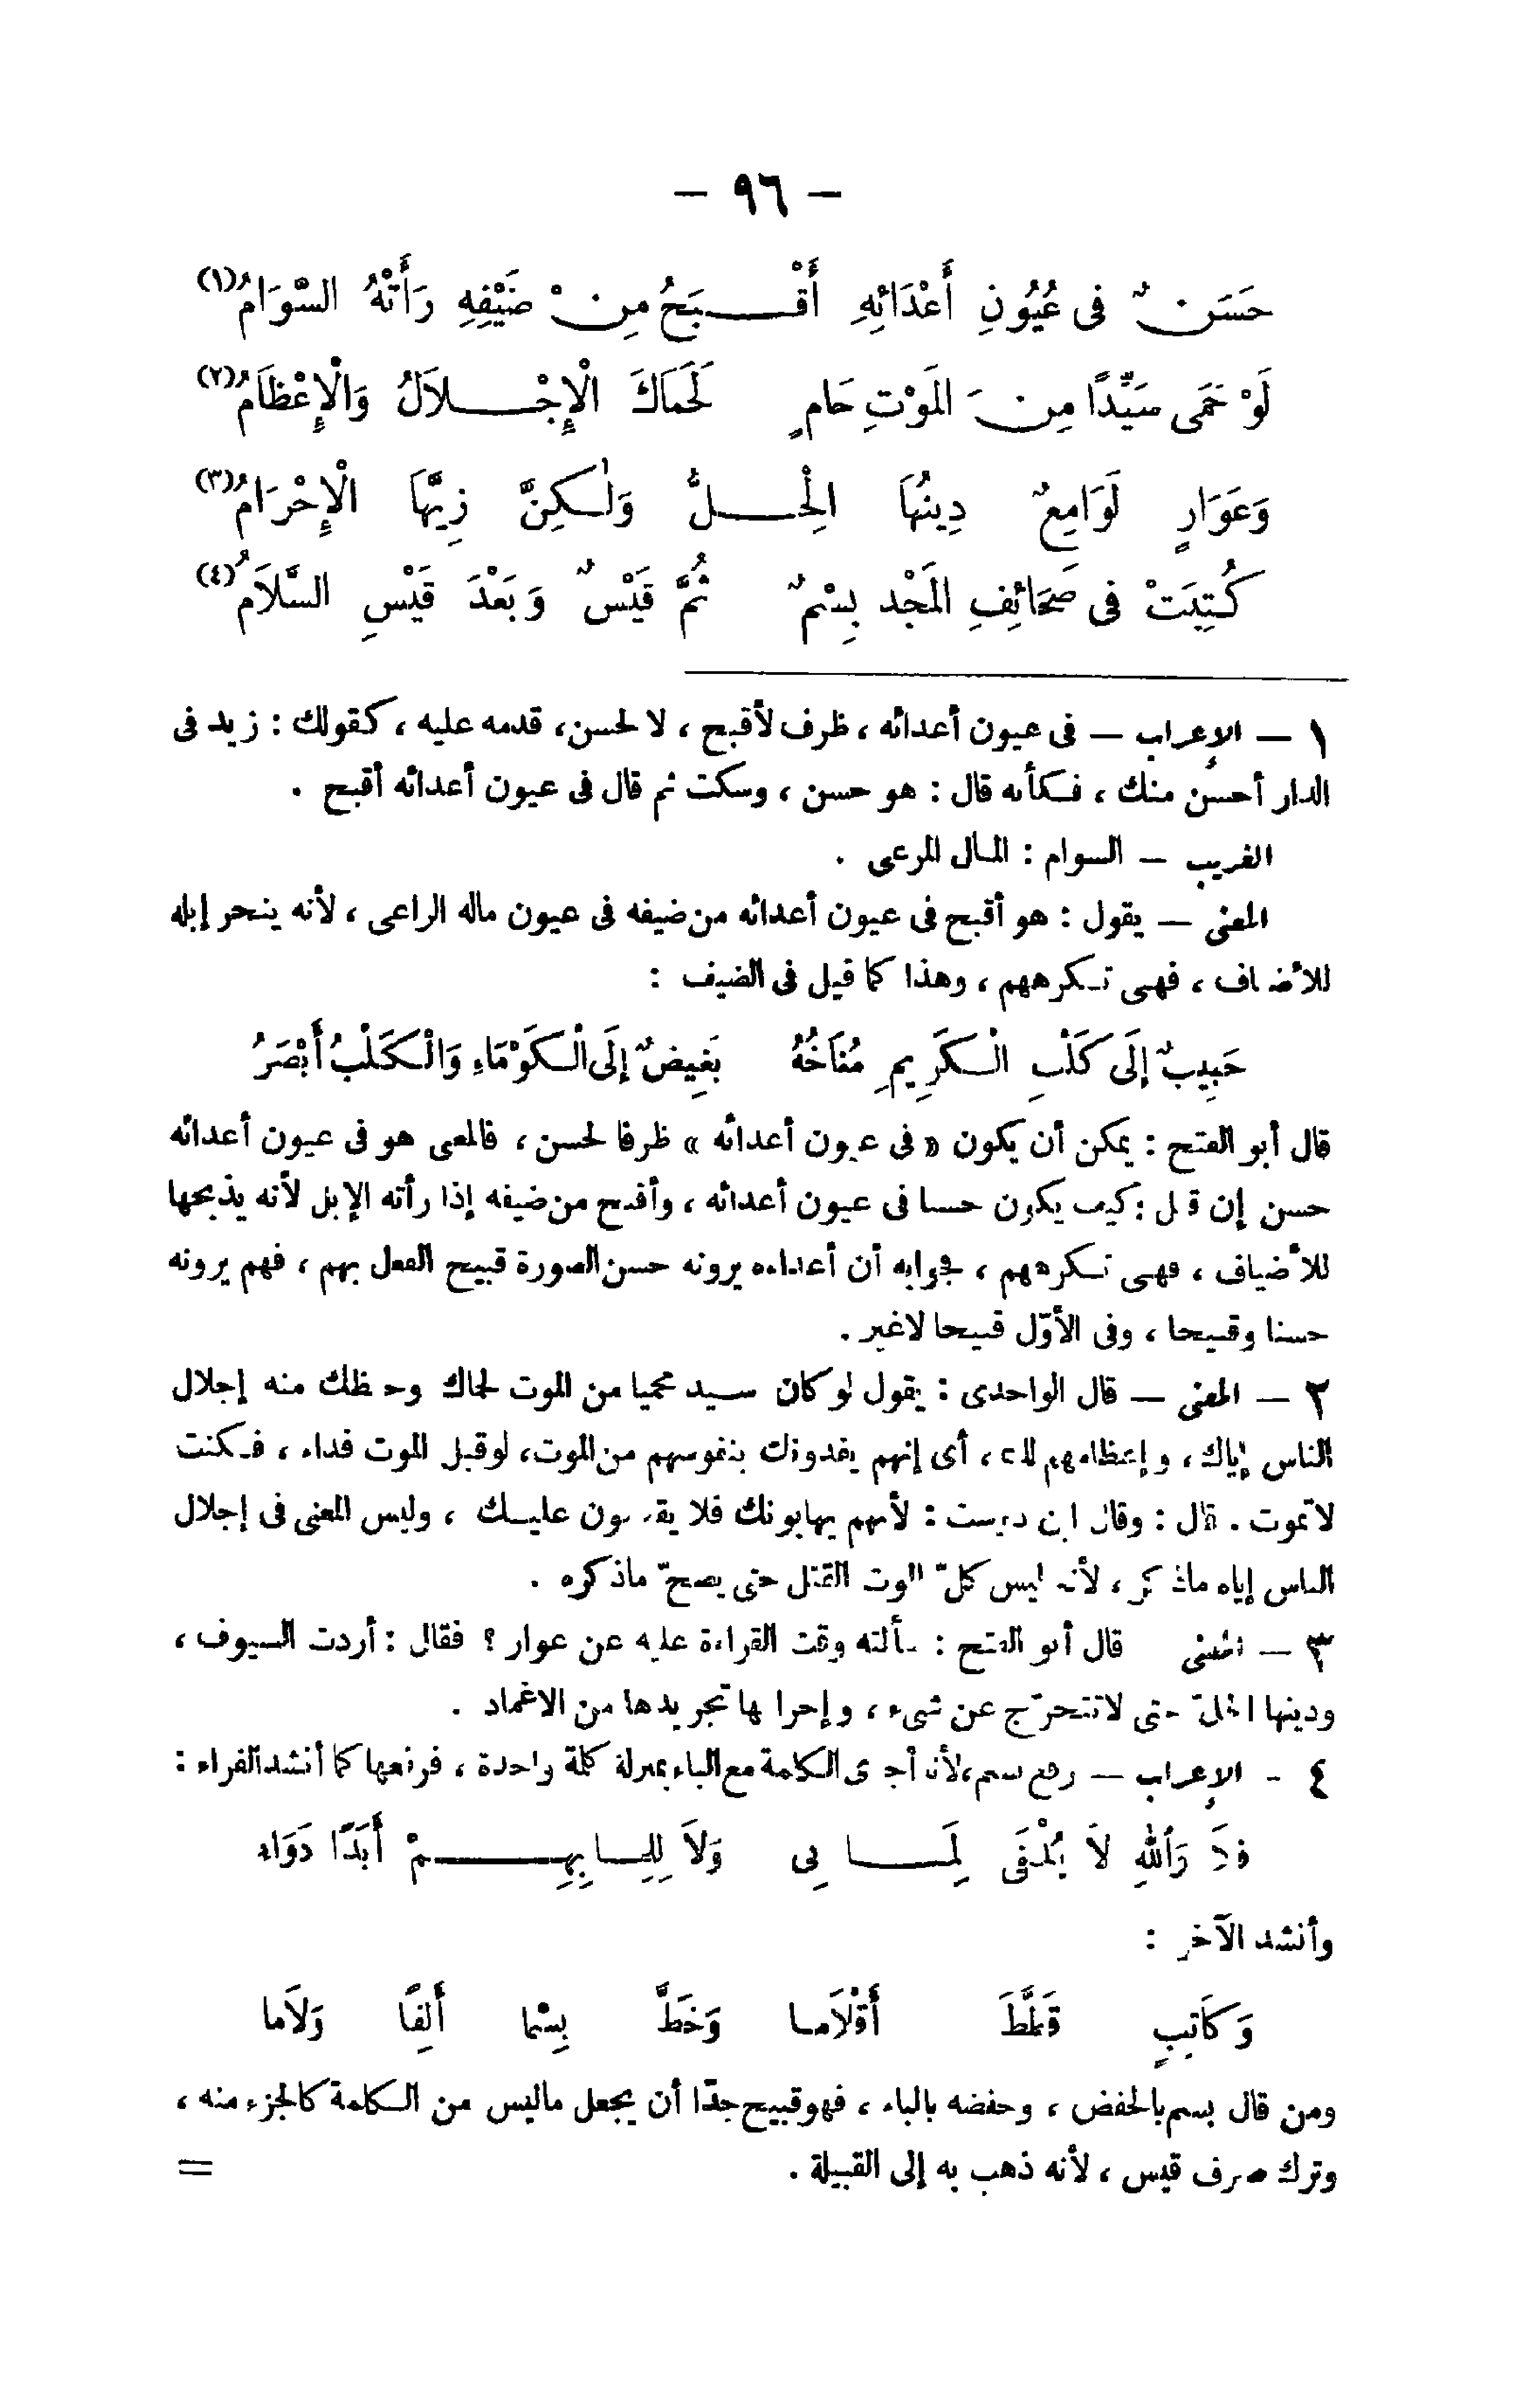 — ٩٦ —
حَسَنٌ فى عُيُونِ أَعْدَائِهِ أَقْـــبَحُ مِنْ ضَيْفِهِ رَأَتْهُ السَّوَامُ(١)
لَوْ حَمَى سَيِّدًا مِنَ المَوْتِ حَامٍ لَحَمَاكَ الْإِجْـــلاَلُ وَالْإِعْظَامُ(٢)
وَعَوَارٍ لَوَامِعٌ دِينُهَا الْحِـــلُّ وَلٰكِنَّ زِيَّهَا الْإِحْرَامُ(٣)
كُتِبَتْ فى صَحَائِفِ المَجْدِ بِسْمٌ ثُمَّ قَيْسٌ وَبَعْدَ قَيْسِ السَّلاَمُ(٤)
١ — الإعراب — فى عيون أعدائه ، ظرف لأقبح ، لا لحسن، قدمه عليه ، كقولك : زيد فى
الدار أحسن منك ، فكأنه قال : هو حسن ، وسكت ثم قال فى عيون أعدائه أقبح .
الغريب — السوام : المال المرعى .
المعنى — يقول : هو أقبح فى عيون أعدائه من ضيفه فى عيون ماله الراعى ، لأنه ينحر إبله
للأضياف ، فهى تكرههم ، وهذا كما قيل فى الضيف :
حَبِيبٌ إِلَى كَلْبِ الْكَرِيمِ مُنَاخُهُ بَغِيضٌ إِلَى الْكَوْمَاءِ وَالْكَلْبُ أَبْصَرُ
قال أبو الفتح : يمكن أن يكون « فى عيون أعدائه » ظرفا لحسن ، فالمعنى هو فى عيون أعدائه
حسن إن قيل : كيف يكون حسنا فى عيون أعدائه ، وأقبح من ضيفه إذا رأته الإبل لأنه يذبحها
للأضياف ، فهى تكرههم ، فجوابه أن أعداءه يرونه حسن الصورة قبيح الفعل بهم ، فهم يرونه
حسنا وقبيحا ، وفى الأوّل قبيحا لاغير .
٢ — المعنى — قال الواحدى : يقول لو كان سيد محميا من الموت لحماك وحفظك منه إجلال
الناس إياك ، وإعظامهم لك ، أى إنهم يفدونك بنفوسهم من الموت، لوقبل الموت فداء ، فكنت
لاتموت . قال : وقال ابن درست : لأنهم يهابونك فلا يقدمون عليك ، وليس المعنى فى إجلال
الناس إياه ماذكر ، لأنه ليس كلّ الموت القتل حتى يصحّ ماذكره .
٣ — المعنى قال أبو الفتح : سألته وقت القراءة عليه عن عوار ؟ فقال : أردت السيوف ،
ودينها الحلّ حتى لاتتحرّج عن شىء ، وإحرامها تجريدها من الاغماد .
٤ - الإعراب — رفع بسم، لأنه أجرى الكلمة مع الباء بمنزلة كلمة واحدة ، فرفعها كما أنشد الفراء :
فلاَ وَاللهِ لاَ يُلْفَى لِمَـــا بِى وَلاَ لِلِمَـا بِهِـــمْ أَبَدًا دَوَاء
وأنشد الآخر :
وَكَاتِبٍ قَطَّطَ أَقْلاَما وَخَطَّ بِسْمًا أَلِفًا وَلاَما
ومن قال بسم بالخفض ، وخفضه بالباء ، فهو قبيح جدّا أن يجعل ماليس من الكلمة كالجزء منه ،
وترك صرف قيس ، لأنه ذهب به إلى القبيلة . =